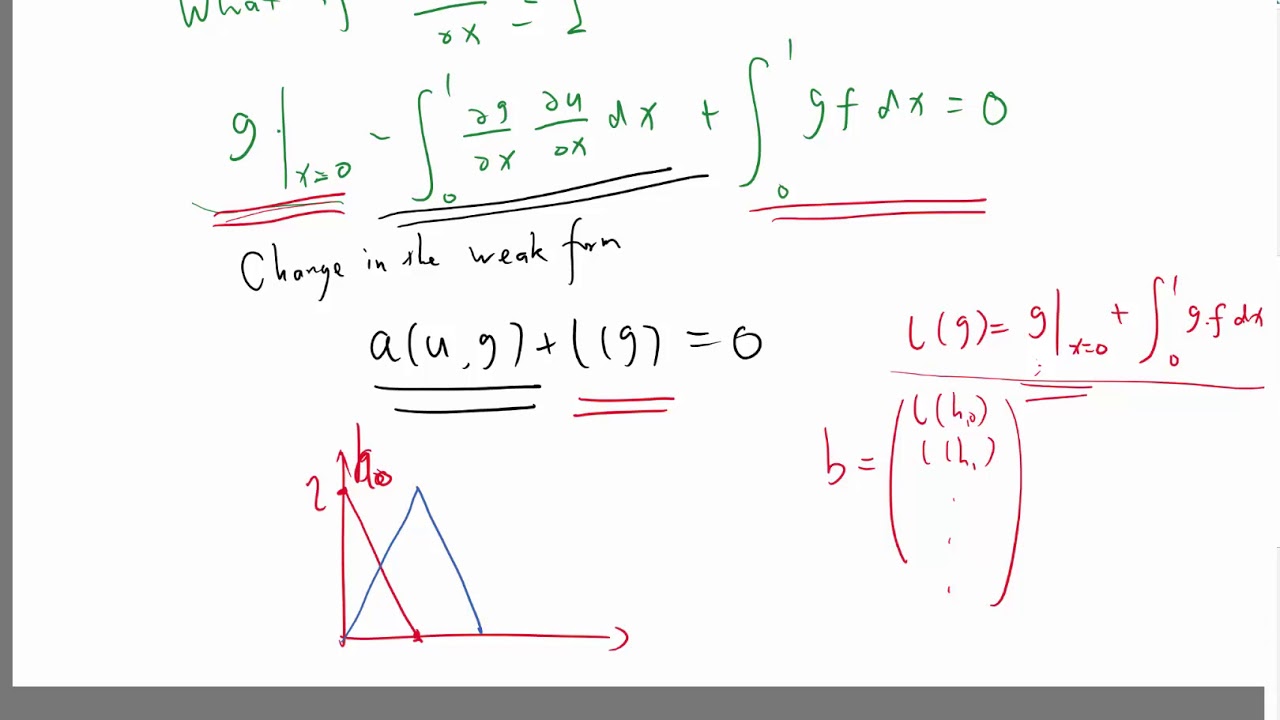 What if ∂x = 1
g|x=0 - ∫₀¹ ∂g/∂x ∂u/∂x dx + ∫₀¹ g f dx = 0
Change in the weak form
a(u,g) + l(g) = 0
l(g) = g|x=0 + ∫₀¹ g.f dx
b = ( l(h₀)
l(h₁)
.
.
. )
1
h₀